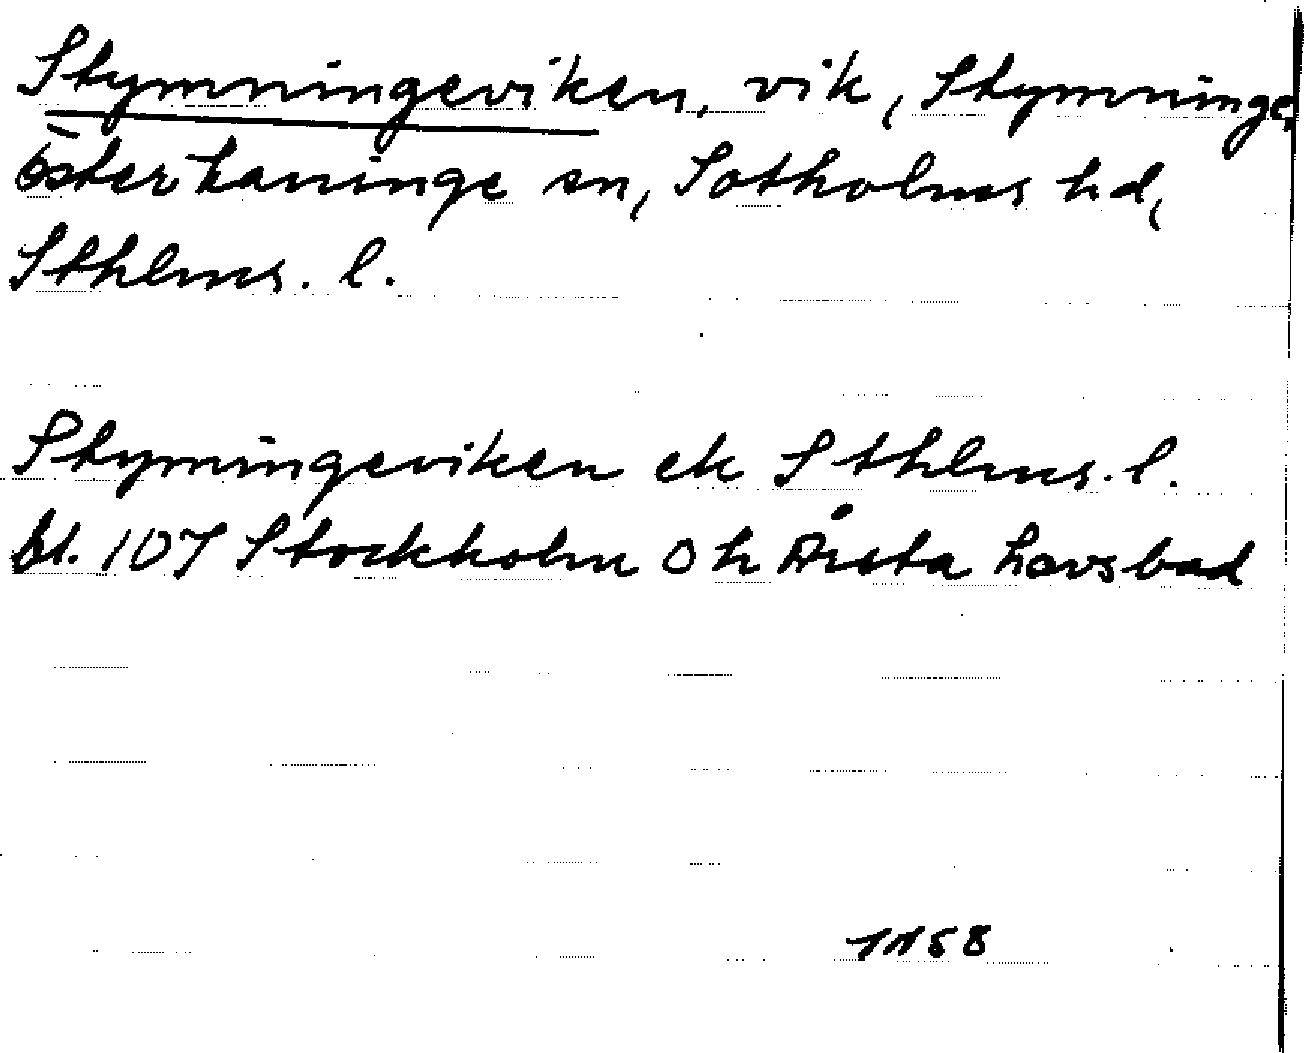 Stymningeviken, vik, Stymninge,
Österhaninge sn, Sotholms hd,
Sthlms. l.
Stymingeviken ek Sthlms. l.
bl. 107 Stockholm Oh Årsta havsbad